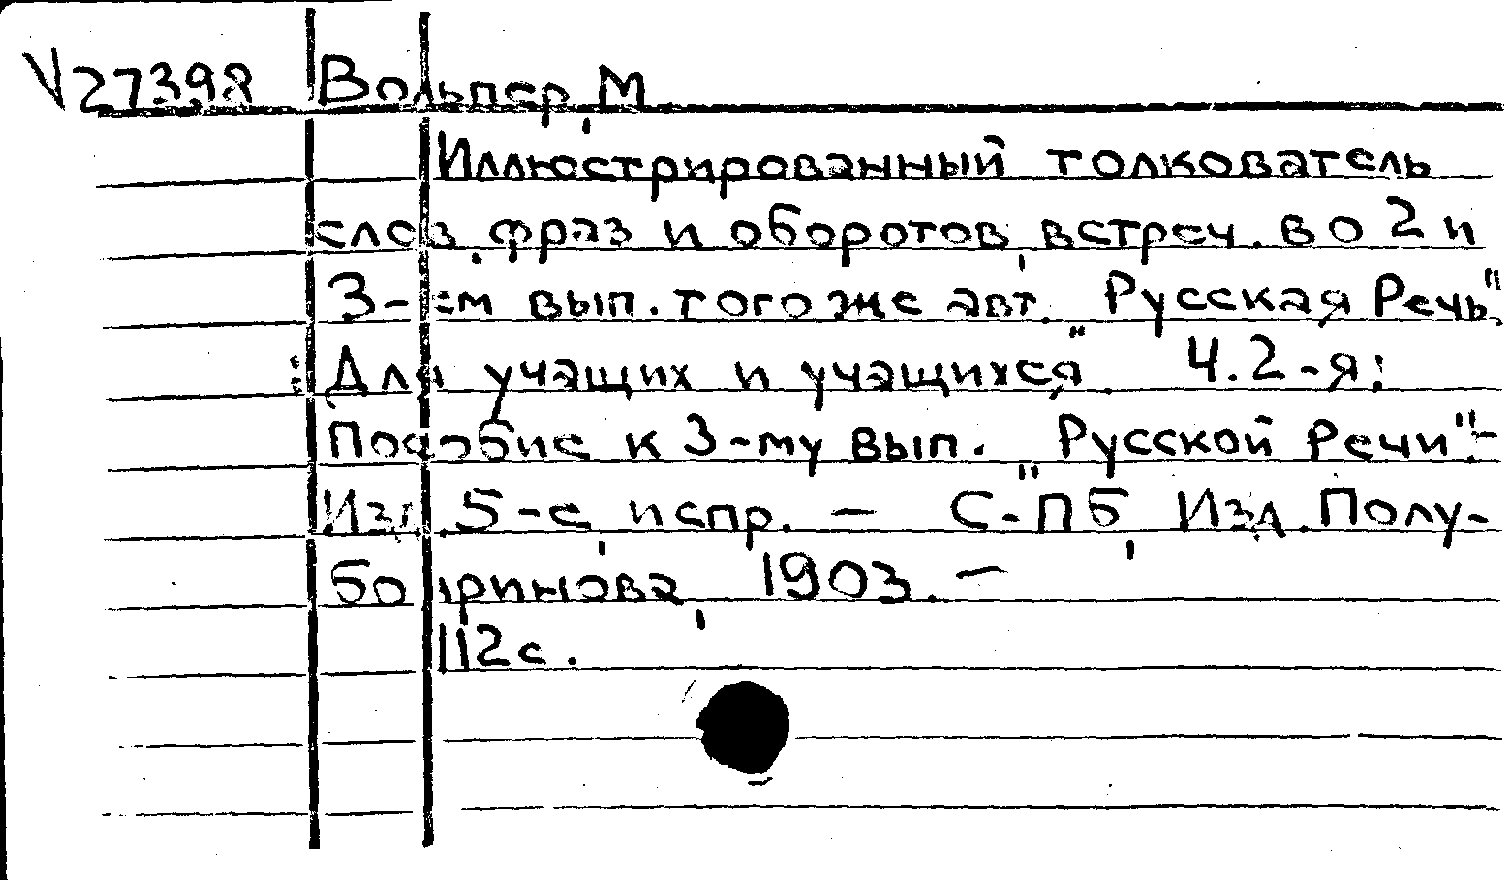 V27398 Вольпер, М
Иллюстрированный толкователь
слов, фраз и оборотов, встреч. во 2 и
3-ем вып. того же авт. "Русская Речь".
: Для учащих и учащихся". Ч.2-я:
Пособие к 3-му вып. "Русской Речи".-
Изд. 5-е, испр. – С-ПБ, Изд. Полу-
бояринова, 1903. –
112с.